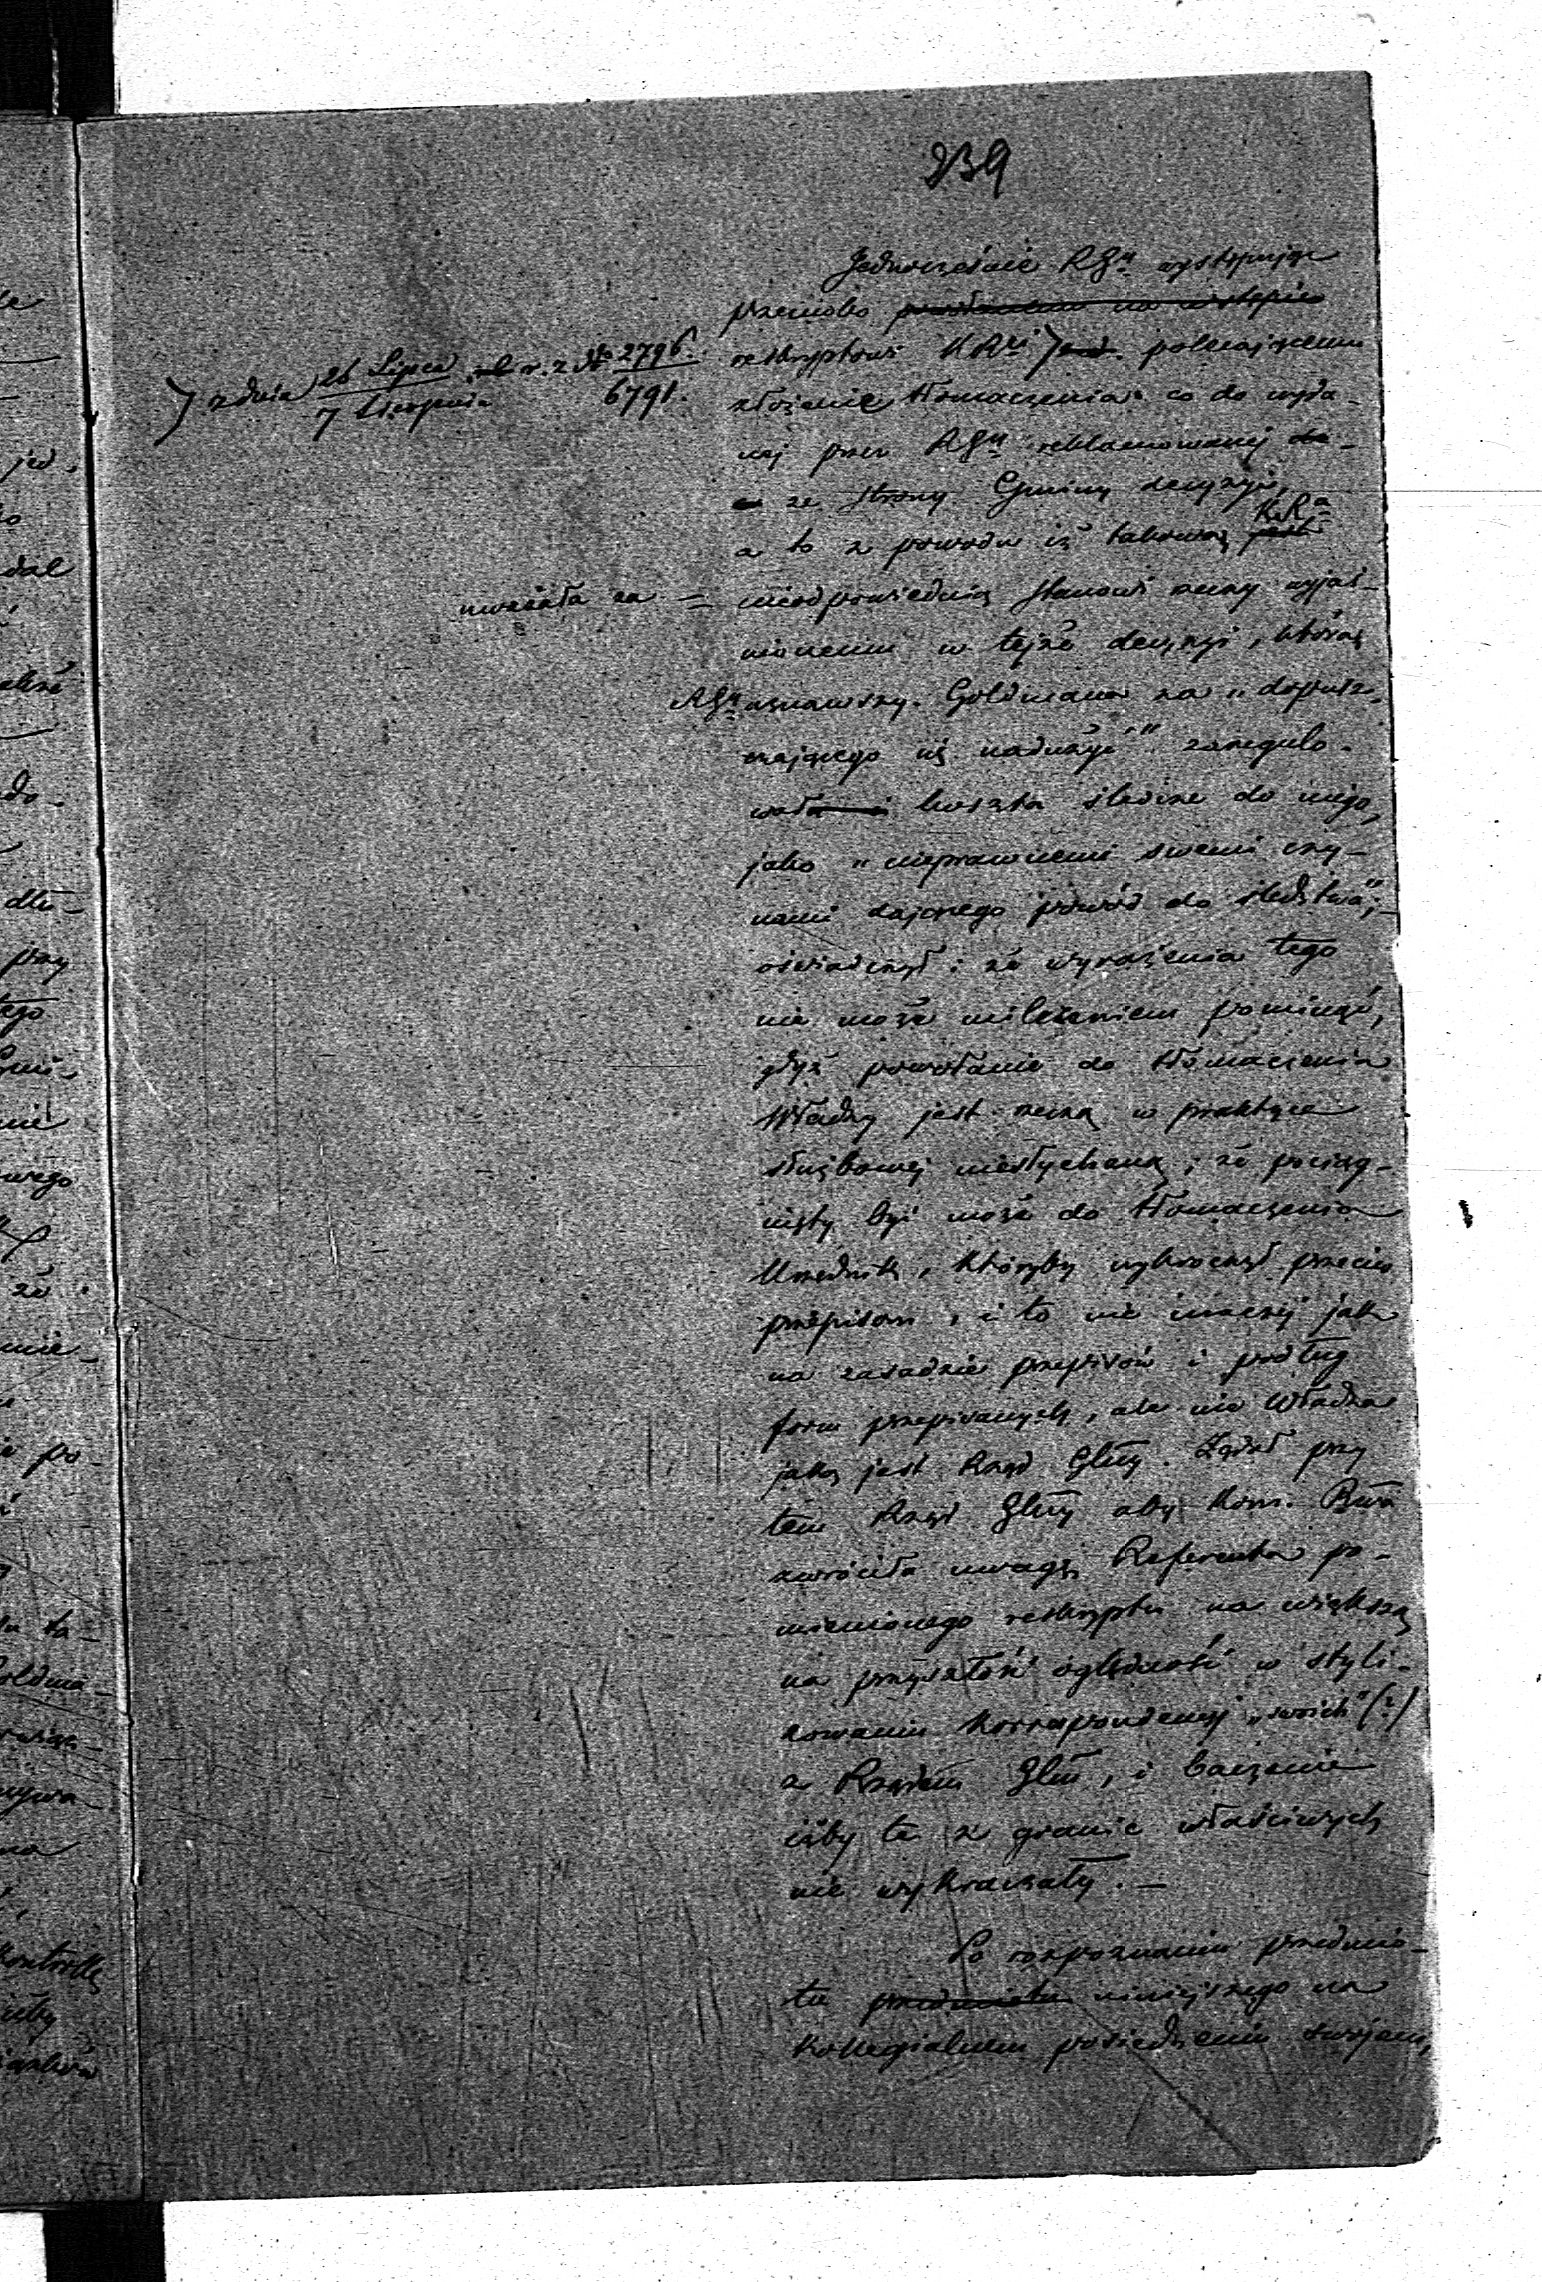 239
Jednocześnie RGu występując
przeciwko powołanemu na wstępie
reskryptowi KRzi ) polecającemu
) z dnia 26 Lipca / 7 Sierpnia r. z No 2796 / 6791.
złożenie tłomaczenia co do wyda-
nej przez RGu reklamowanej
ze strony Gminy decyzyi,
a to z powodu iż takową KRa
uważała za = nieodpowiednią stanowi rzeczy wyjaś-
nionemu w tejże decyzyi, którą
RGu uznawszy Goldmana za „dopusz-
czającego się nadużyć" zaregulo-
wał koszta śledcze do niego,
jako „nieprawnemi swemi czy-
nami dającego powód do śledztwa";
oświadczył: że wyrażenia tego
nie może milczeniem pominąć,
gdyż powołanie do tłómaczenia
Władzy jest rzeczą w praktyce
służbowej niesłychaną; że pociąg-
nięty być może do tłomaczenia
Urzednik, któryby wykroczył przeciw
przepisom, i to nie inaczej jak
na zasadzie przepisów i podług
form przepisanych, ale nie Władza
jaką jest Rząd Glny. Żądał przy
tem Rząd Glny aby Kom. Rwa
zwróciła uwagę Referenta po-
mienionego reskryptu na większą
na przyszłość oględność w styli-
zowaniu korrespondencyj „swoich" (:)
z Rządem Glm, i baczenie
iżby te z granic właściwych
nie wykraczały. —
Po rozpoznaniu przedmio-
tu przedmiotu niniejszego na
Kollegialnem posiedzeniu swojem,